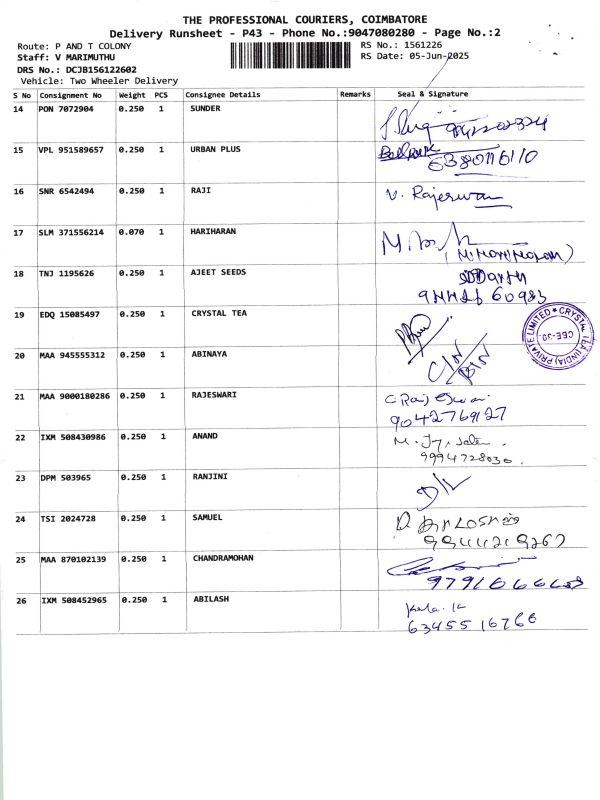 THE PROFESSIONAL COURIERS, COIMBATORE
Delivery Runsheet - P43 - Phone No.:9047080280 - Page No.:2
Route: P AND T COLONY RS No.: 1561226
Staff: V MARIMUTHU RS Date: 05-Jun-2025
DRS No.: DCJB156122602
Vehicle: Two Wheeler Delivery
S No Consignment No Weight PCS Consignee Details Remarks Seal & Signature
14 PON 7072904 0.250 1 SUNDER
15 VPL 951589657 0.250 1 URBAN PLUS
6380116110
16 SNR 6542494 0.250 1 RAJI V. Rajeswari
17 SLM 371556214 0.070 1 HARIHARAN
18 TNJ 1195626 0.250 1 AJEET SEEDS
19 EDQ 15085497 0.250 1 CRYSTAL TEA
CRYSTAL TEA (INDIA) PRIVATE LIMITED
CBE-30.
20 MAA 945555312 0.250 1 ABINAYA
21 MAA 9000180286 0.250 1 RAJESWARI
9042769127
22 IXM 508430986 0.250 1 ANAND
9994728030.
23 DPM 503965 0.250 1 RANJINI D/L
24 TSI 2024728 0.250 1 SAMUEL
9944219267
25 MAA 870102139 0.250 1 CHANDRAMOHAN
26 IXM 508452965 0.250 1 ABILASH Kala. K
6345516766